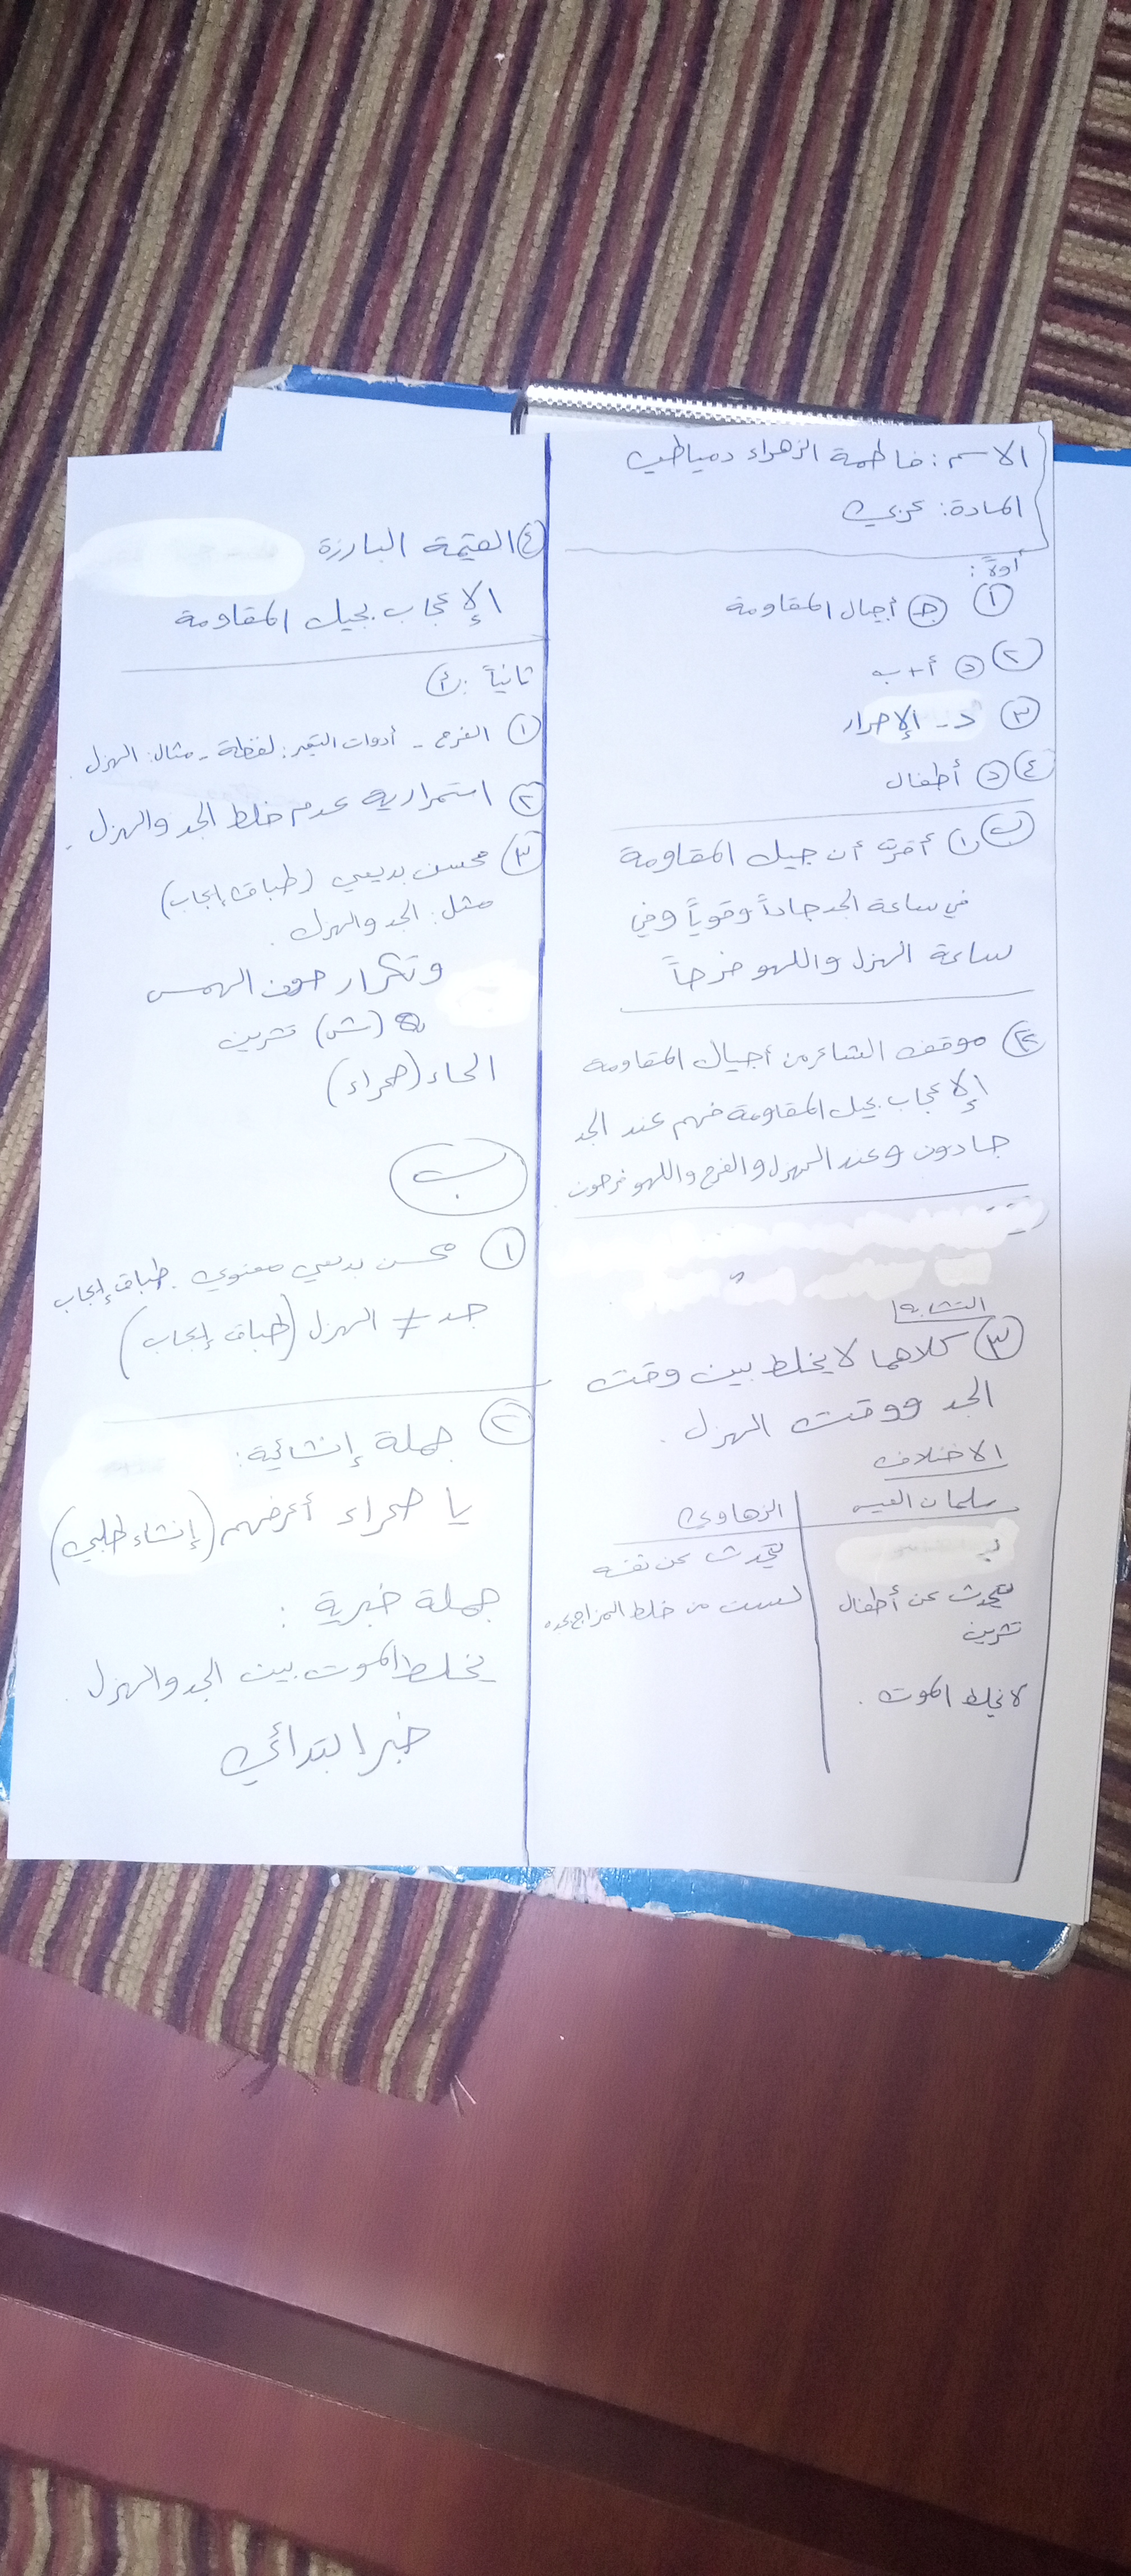 الاسم: فاطمة الزهراء دمياطي
المادة: عربي
أولاً:
أ ① ج أجيال المقاومة
② د أ+ب
③ د - الإصرار
④ د أطفال
ب ① أقرت أن جيل المقاومة
في ساعة الجد جاداً وقوياً وفي
ساعة الهزل واللهو فرحاً
② موقف الشاعر من أجيال المقاومة
الإعجاب بجيل المقاومة فهم عند الجد
جادون وعند الهزل والفرح واللهو فرحون
التشابه
③ كلاهما لا يخلط بين وقت
الجد ووقت الهزل.
الاختلاف
سلمان العيسى | الزهاوي
يتحدث عن أطفال | يتحدث عن نفسه
تشرين | لست من خلط المزاح بجده
لا يخلط الموت.
④ القيمة البارزة
الإعجاب بجيل المقاومة
ثانياً: أ
① الفرح - أدوات التعبير: لفظة - مثال: الهزل.
② استمرارية عدم خلط الجد والهزل.
③ محسن بديعي (طباق إيجاب)
مثل: الجد والهزل.
وتكرار حروف الهمس
(ش) تشرين
الحاء (صحراء)
ب
① محسن بديعي معنوي. طباق إيجاب
جد ≠ الهزل (طباق إيجاب)
② جملة إنشائية:
يا صحراء أعرفهم (إنشاء طلبي)
جملة خبرية:
يخلط الموت بين الجد والهزل.
خبر ابتدائي